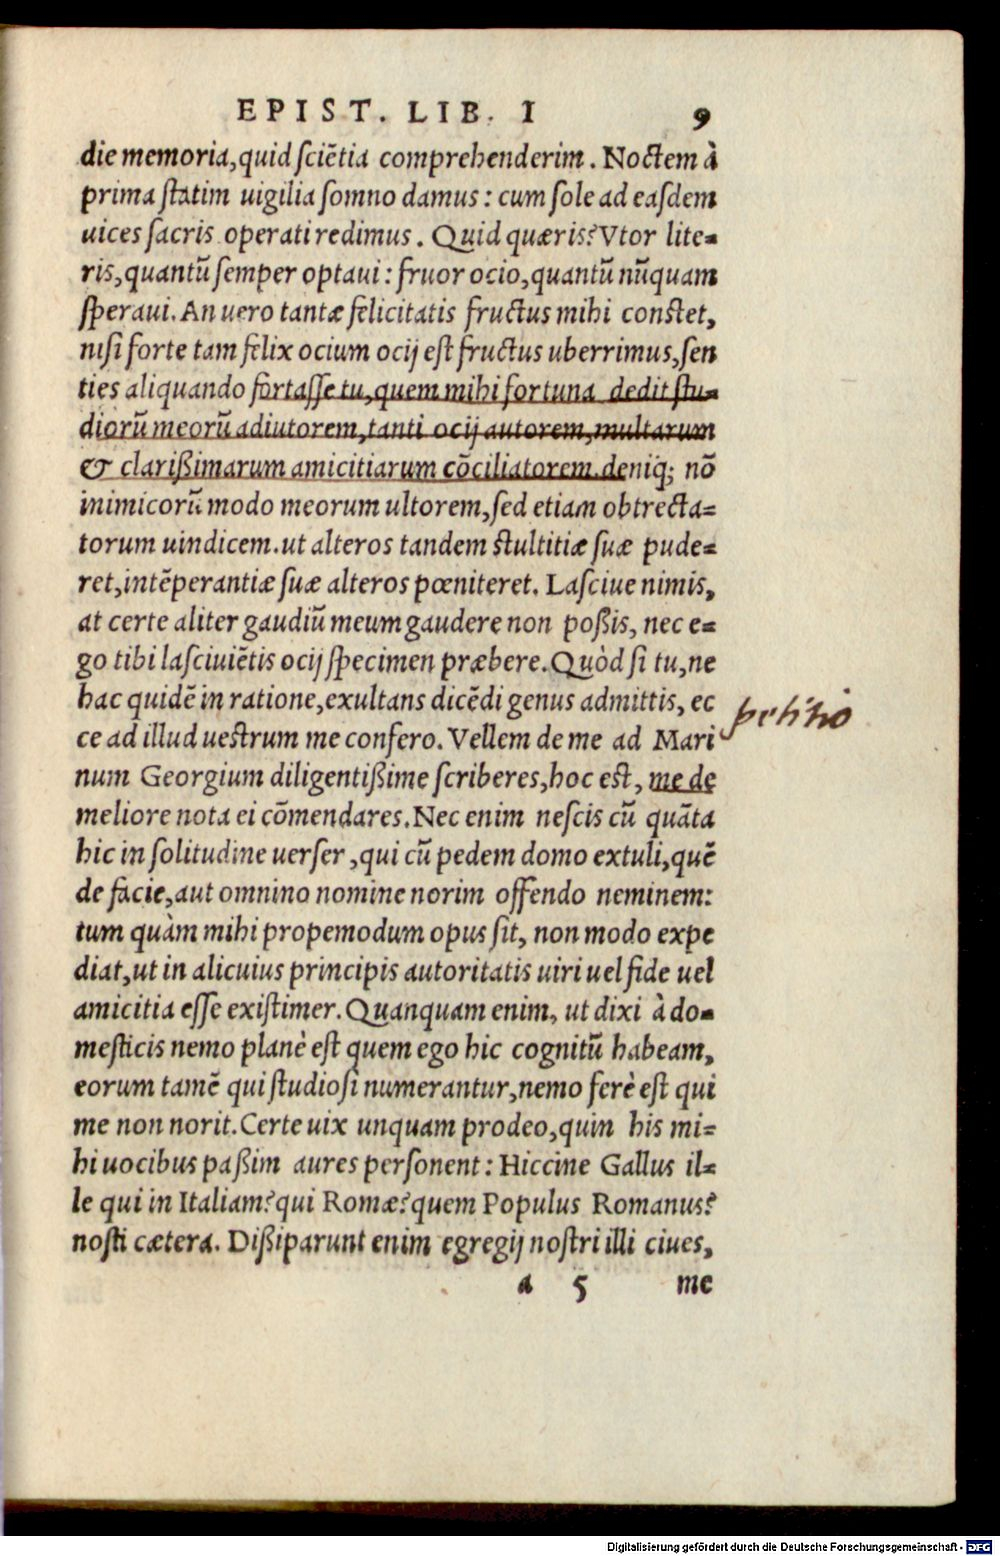 EPIST. LIB. I 9
die memoria, quid sciētia comprehenderim. Noctem à
prima statim uigilia somno damus: cum sole ad easdem
uices sacris operati redimus. Quid quæris? Vtor lite-
ris, quantū semper optaui: fruor ocio, quantū nūquam
speraui. An uero tantæ felicitatis fructus mihi constet,
nisi forte tam felix ocium ocij est fructus uberrimus, sen
ties aliquando fortasse tu, quem mihi fortuna dedit stu-
diorū meorū adiutorem, tanti ocij autorem, multarum
& clarißimarum amicitiarum cōciliatorem deniq; nō
inimicorū modo meorum ultorem, sed etiam obtrecta-
torum uindicem. ut alteros tandem stultitiæ suæ pude-
ret, intēperantiæ suæ alteros pœniteret. Lasciue nimis,
at certe aliter gaudiū meum gaudere non poßis, nec e-
go tibi lasciuiētis ocij specimen præbere. Quòd si tu, ne
hac quidē in ratione, exultans dicēdi genus admittis, ec
ce ad illud uestrum me confero. Vellem de me ad Mari
petitio
num Georgium diligentißime scriberes, hoc est, me de
meliore nota ei cōmendares. Nec enim nescis cū quāta
hic in solitudine uerser, qui cū pedem domo extuli, quē
de facie, aut omnino nomine norim offendo neminem:
tum quàm mihi propemodum opus sit, non modo expe
diat, ut in alicuius principis autoritatis uiri uel fide uel
amicitia esse existimer. Quanquam enim, ut dixi à do-
mesticis nemo planè est quem ego hic cognitū habeam,
eorum tamē qui studiosi numerantur, nemo ferè est qui
me non norit. Certe uix unquam prodeo, quin his mi-
hi uocibus paßim aures personent: Hiccine Gallus il-
le qui in Italiam? qui Romæ? quem Populus Romanus?
nosti cætera. Dißiparunt enim egregij nostri illi ciues,
a 5 me
Digitalisierung gefördert durch die Deutsche Forschungsgemeinschaft - DFG